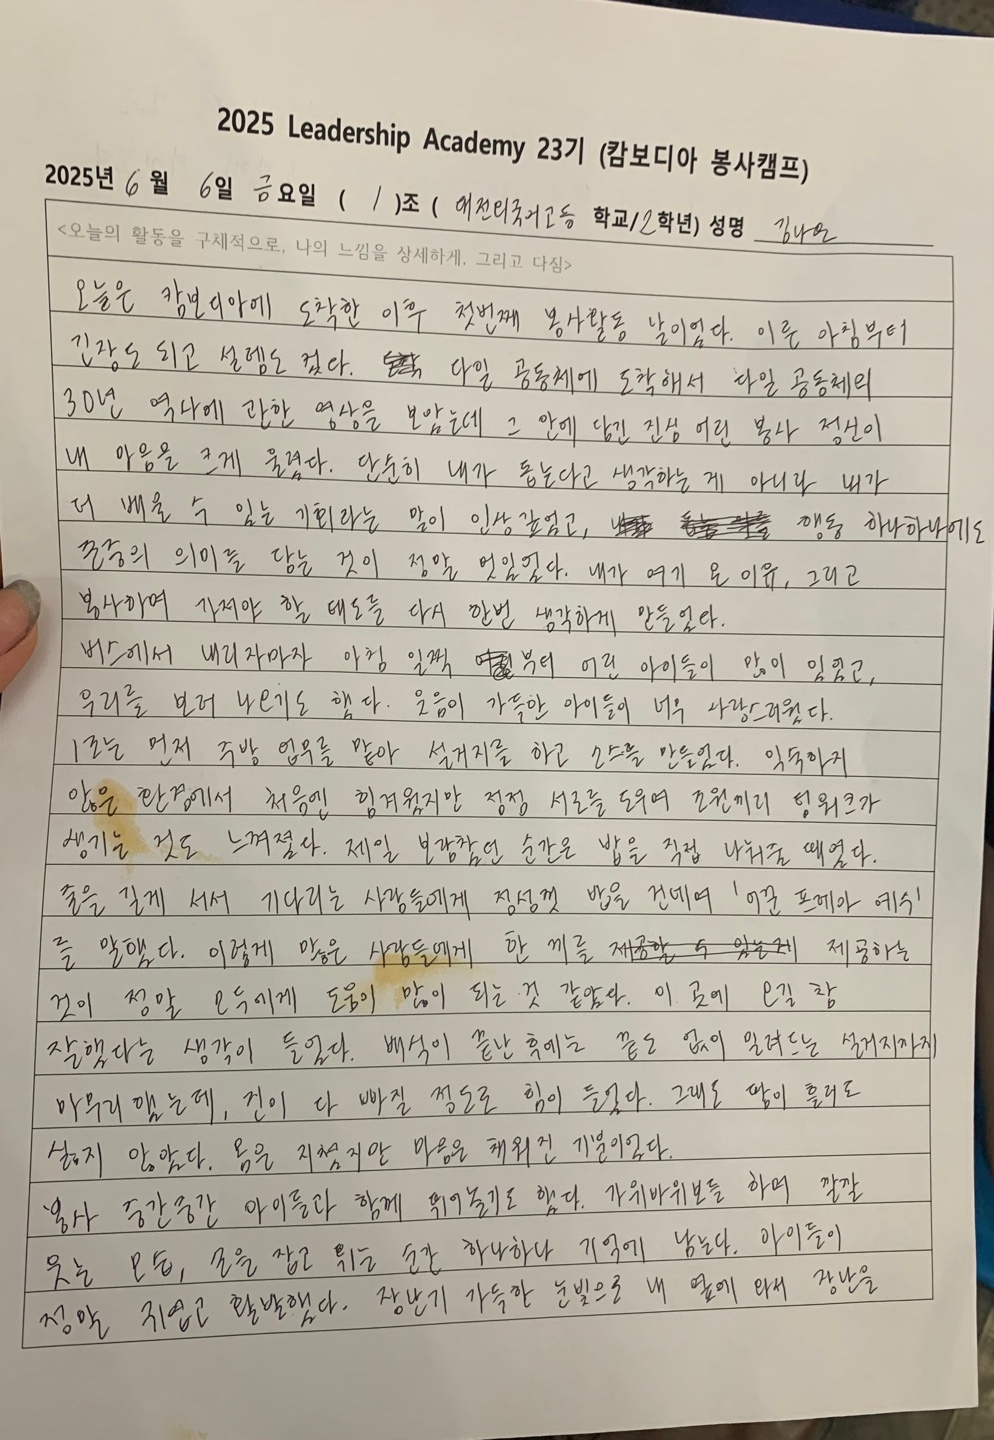 2025 Leadership Academy 23기 (캄보디아 봉사캠프)
2025년 6월 6일 금요일 ( 1 )조 ( 대전외국어고등 학교/2학년) 성명 김나은
<오늘의 활동을 구체적으로, 나의 느낌을 상세하게, 그리고 다짐>
오늘은 캄보디아에 도착한 이후 첫번째 봉사활동 날이었다. 이른 아침부터
긴장도 되고 설렘도 컸다. 다일 공동체에 도착해서 다일 공동체의
30년 역사에 관한 영상을 보았는데 그 안에 담긴 진심 어린 봉사 정신이
내 마음을 크게 울렸다. 단순히 내가 돕는다고 생각하는 게 아니라 내가
더 배울 수 있는 기회라는 말이 인상깊었고, 행동 하나하나에도
존중의 의미를 담는 것이 정말 멋있었다. 내가 여기 온 이유, 그리고
봉사하며 가져야 할 태도를 다시 한번 생각하게 만들었다.
버스에서 내리자마자 아침 일찍 부터 어린 아이들이 많이 있었고,
우리를 보러 나오기도 했다. 웃음이 가득한 아이들이 너무 사랑스러웠다.
1조는 먼저 주방 업무를 맡아 설거지를 하고 소스를 만들었다. 익숙하지
않은 환경에서 처음엔 힘겨웠지만 점점 서로를 도우며 조원끼리 팀워크가
생기는 것도 느껴졌다. 제일 보람찼던 순간은 밥을 직접 나눠줄 때였다.
줄을 길게 서서 기다리는 사람들에게 정성껏 밥을 건네며 '어꾼 프레아 예수'
를 말했다. 이렇게 많은 사람들에게 한 끼를 제공할 수 있는게 제공하는
것이 정말 모두에게 도움이 많이 되는 것 같았다. 이 곳에 오길 참
잘했다는 생각이 들었다. 배식이 끝난 후에는 끝도 없이 밀려드는 설거지까지
마무리했는데, 진이 다 빠질 정도로 힘이 들었다. 그래도 땀이 흘러도
싫지 않았다. 몸은 지쳤지만 마음은 채워진 기분이었다.
봉사 중간중간 아이들과 함께 뛰어놀기도 했다. 가위바위보를 하며 깔깔
웃는 모습, 손을 잡고 뛰는 순간 하나하나 기억에 남는다. 아이들이
정말 귀엽고 활발했다. 장난기 가득한 눈빛으로 내 옆에 와서 장난을